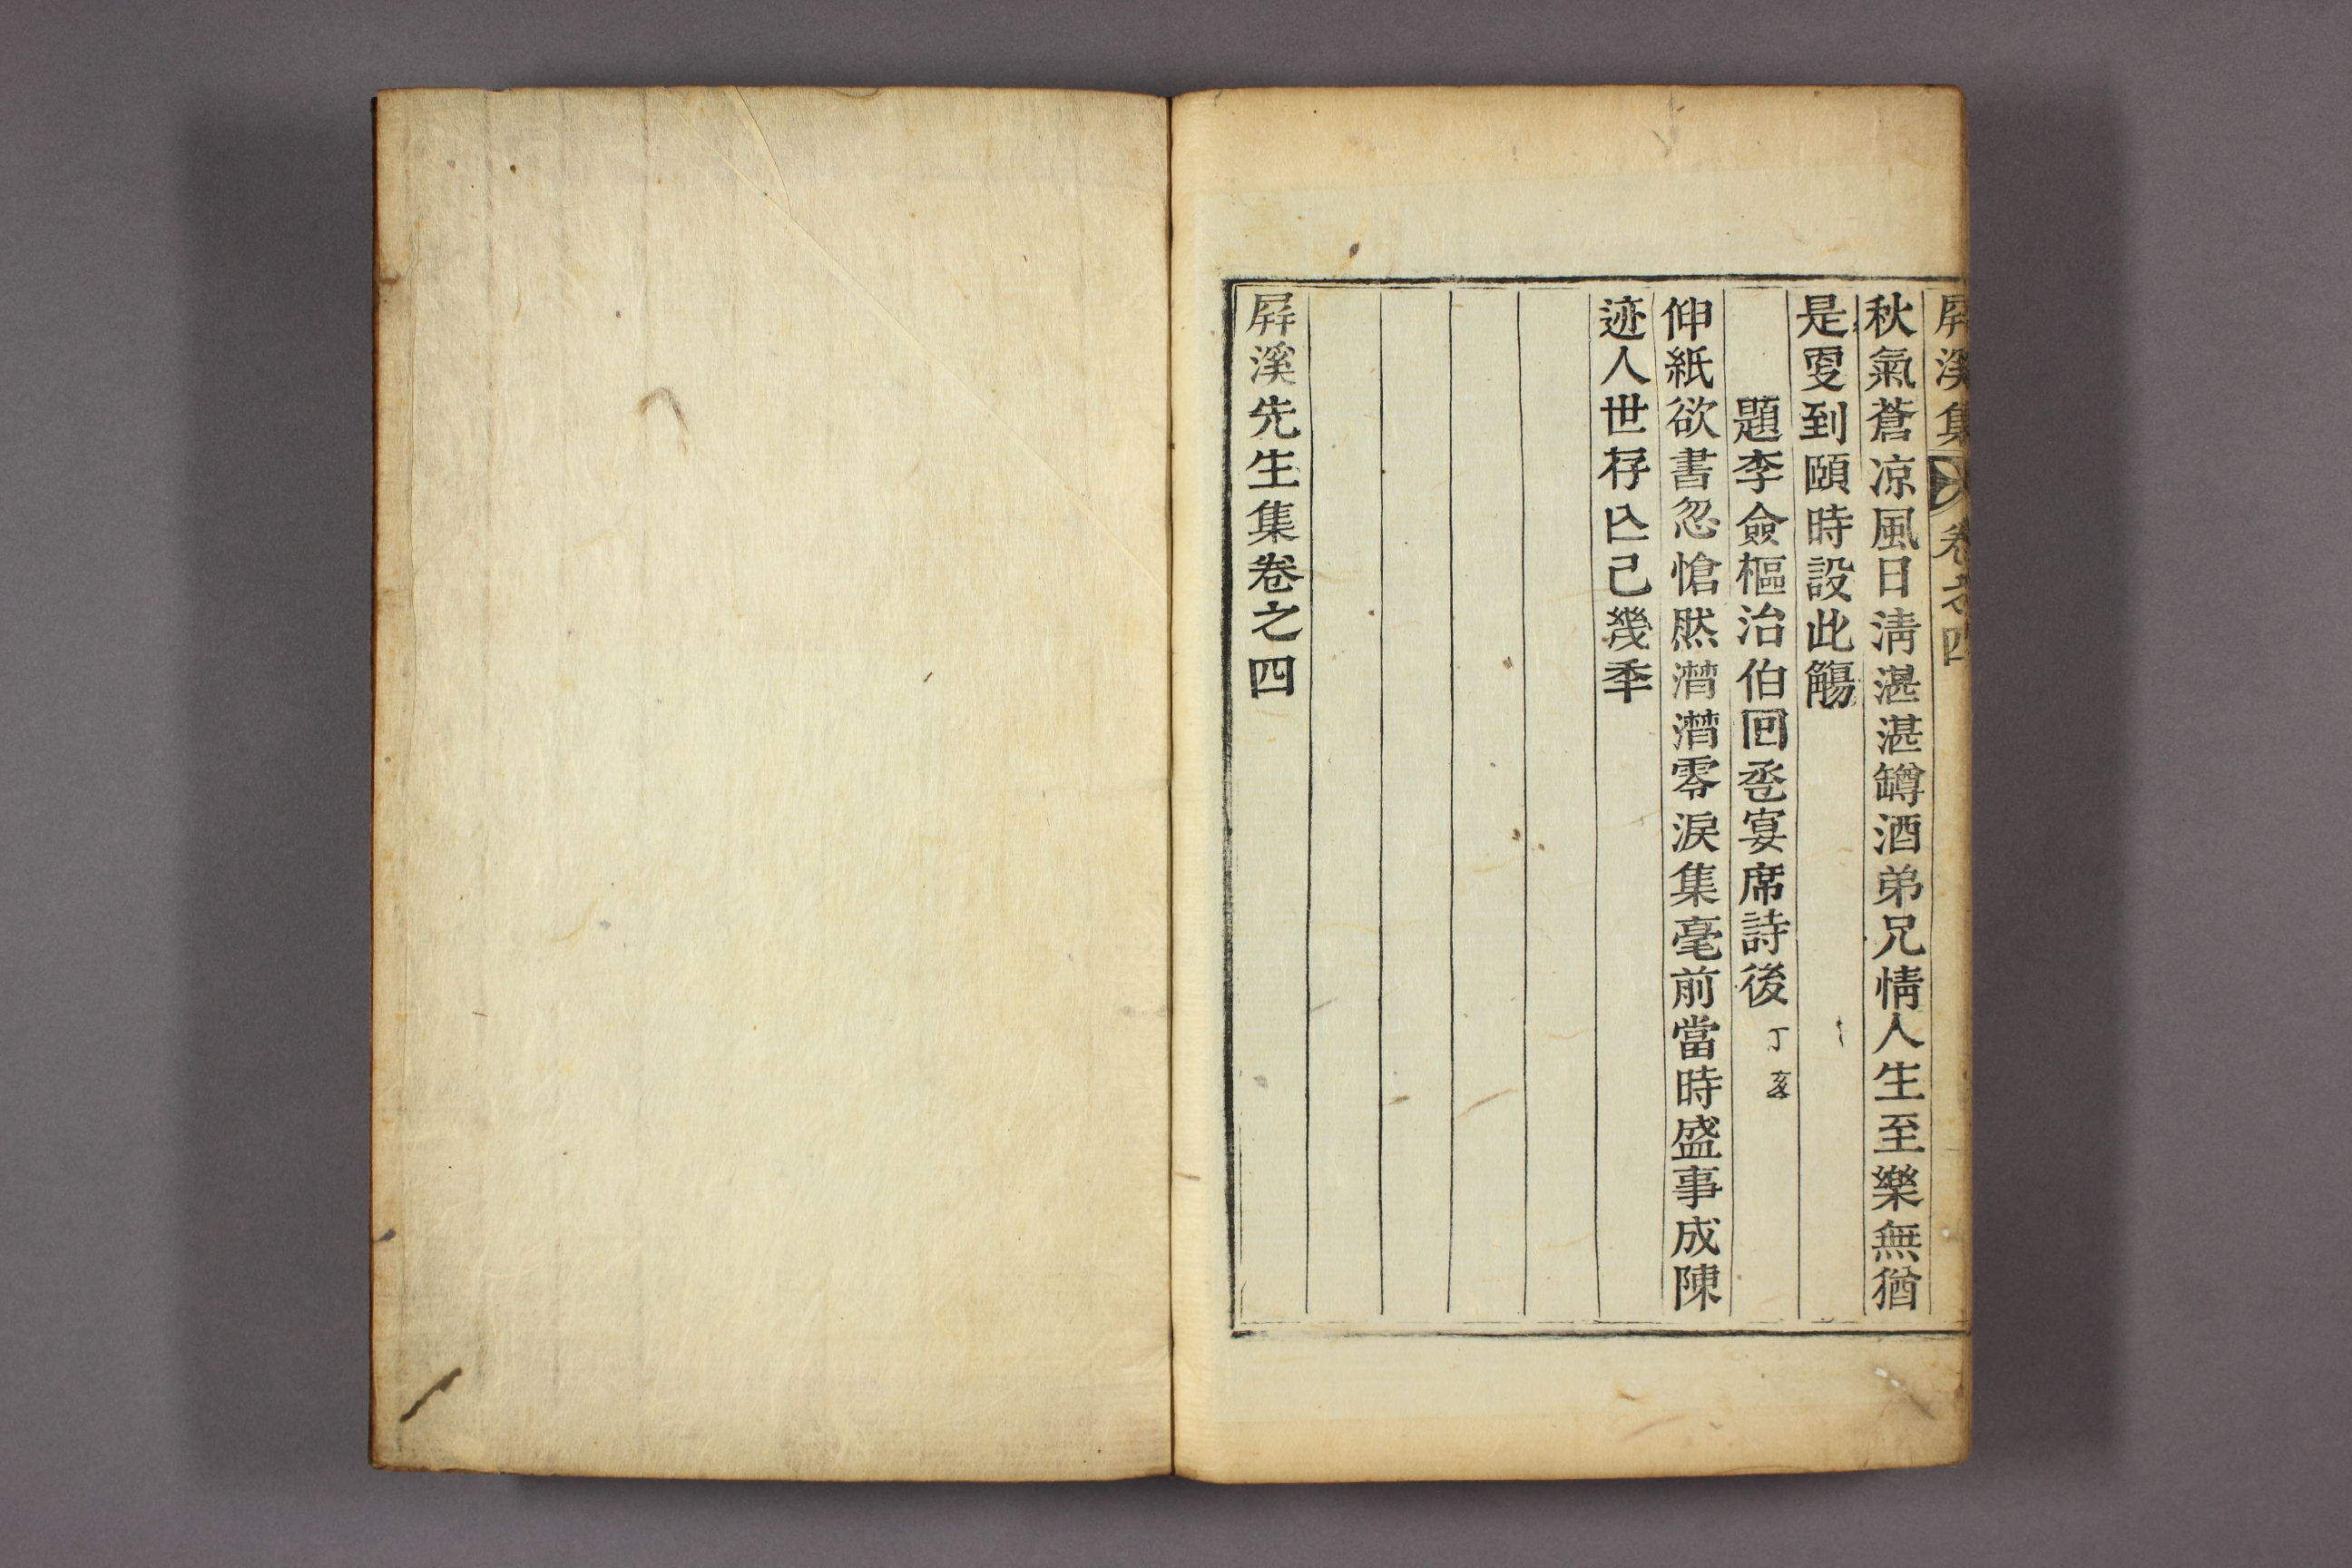 屛溪集 卷之四
秋氣蒼凉風日淸湛湛罇酒弟兄情人生至樂無猶
是更到頤時設此觴
題李僉樞治伯回巹宴席詩後 丁亥
伸紙欲書忽愴然潸潸零淚集毫前當時盛事成陳
迹人世存亾已幾秊
屛溪先生集卷之四